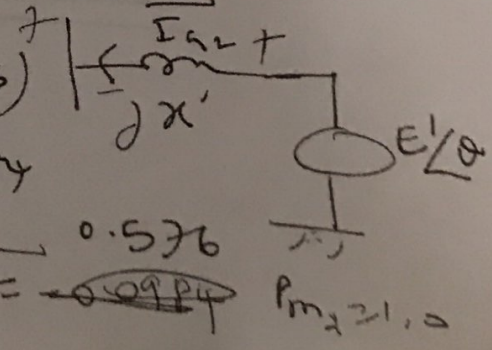 +
I G2 +
jx'
E'∠θ
0.576
= -0.0984
Pm2 = 1.0